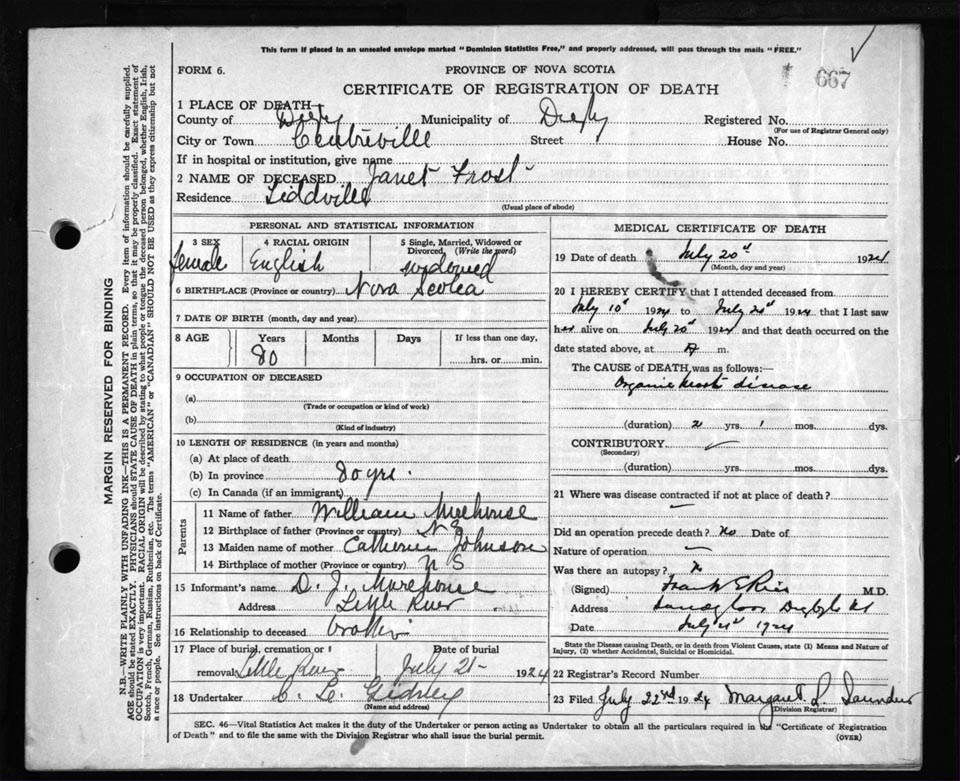 This form if placed in an unsealed envelope marked "Dominion Statistics Free," and properly addressed, will pass through the mails "FREE."
667
FORM 6.
PROVINCE OF NOVA SCOTIA
CERTIFICATE OF REGISTRATION OF DEATH
1 PLACE OF DEATH
County of Digby Municipality of Digby Registered No.
(For use of Registrar General only)
City or Town Centreville Street House No.
If in hospital or institution, give name
2 NAME OF DECEASED Janet Frost
Residence Tiddville
(Usual place of abode)
MARGIN RESERVED FOR BINDING
N.B.—WRITE PLAINLY WITH UNFADING INK—THIS IS A PERMANENT RECORD. Every item of information should be carefully supplied.
AGE should be stated EXACTLY. PHYSICIANS should STATE CAUSE OF DEATH in plain terms, so that it may be properly classified. Exact statement of
OCCUPATION is very important. RACIAL ORIGIN will be described by stating to what people or tongue the deceased person belonged, whether English, Irish,
Scotch, French, German, Russian, Ruthenian, etc. The terms "AMERICAN" or "CANADIAN" SHOULD NOT BE USED as they express citizenship but not
a race or people. See instructions on back of Certificate.
PERSONAL AND STATISTICAL INFORMATION
3 SEX
female
4 RACIAL ORIGIN
English
5 Single, Married, Widowed or
Divorced, (Write the word)
widowed
6 BIRTHPLACE (Province or country) Nova Scotia
7 DATE OF BIRTH (month, day and year)
8 AGE Years Months Days If less than one day,
80 hrs. or min.
9 OCCUPATION OF DECEASED
(a)
(Trade or occupation or kind of work)
(b)
(Kind of industry)
10 LENGTH OF RESIDENCE (in years and months)
(a) At place of death
(b) In province 80 yrs.
(c) In Canada (if an immigrant)
Parents
11 Name of father William
12 Birthplace of father (Province or country) N S
13 Maiden name of mother Catherine Johnson
14 Birthplace of mother (Province or country) N S
15 Informant's name D. J. Morehouse
Address Little River
16 Relationship to deceased brother
17 Place of burial, cremation or Date of burial
removal Little River July 21 1924
18 Undertaker Gidney
(Name and address)
MEDICAL CERTIFICATE OF DEATH
19 Date of death July 20th 1924
(Month, day and year)
20 I HEREBY CERTIFY that I attended deceased from
July 10th 1924 to July 20th 1924 that I last saw
her alive on July 20th 1924 and that death occurred on the
date stated above, at m.
The CAUSE of DEATH was as follows:—
Organic heart disease
(duration) 2 yrs. 1 mos. dys.
CONTRIBUTORY
(Secondary)
(duration) yrs. mos. dys.
21 Where was disease contracted if not at place of death?
Did an operation precede death? No Date of
Nature of operation
Was there an autopsy?
(Signed) Frank E Rice M.D.
Address Sandy Cove Digby
Date July 21st 1924
State the Disease causing Death, or in death from Violent Causes, state (1) Means and Nature of
Injury, (2) whether Accidental, Suicidal or Homicidal.
22 Registrar's Record Number
23 Filed July 22nd 1924 Margaret L. Saunders
(Division Registrar)
SEC. 46—Vital Statistics Act makes it the duty of the Undertaker or person acting as Undertaker to obtain all the particulars required in the "Certificate of Registration
of Death" and to file the same with the Division Registrar who shall issue the burial permit.
(OVER)